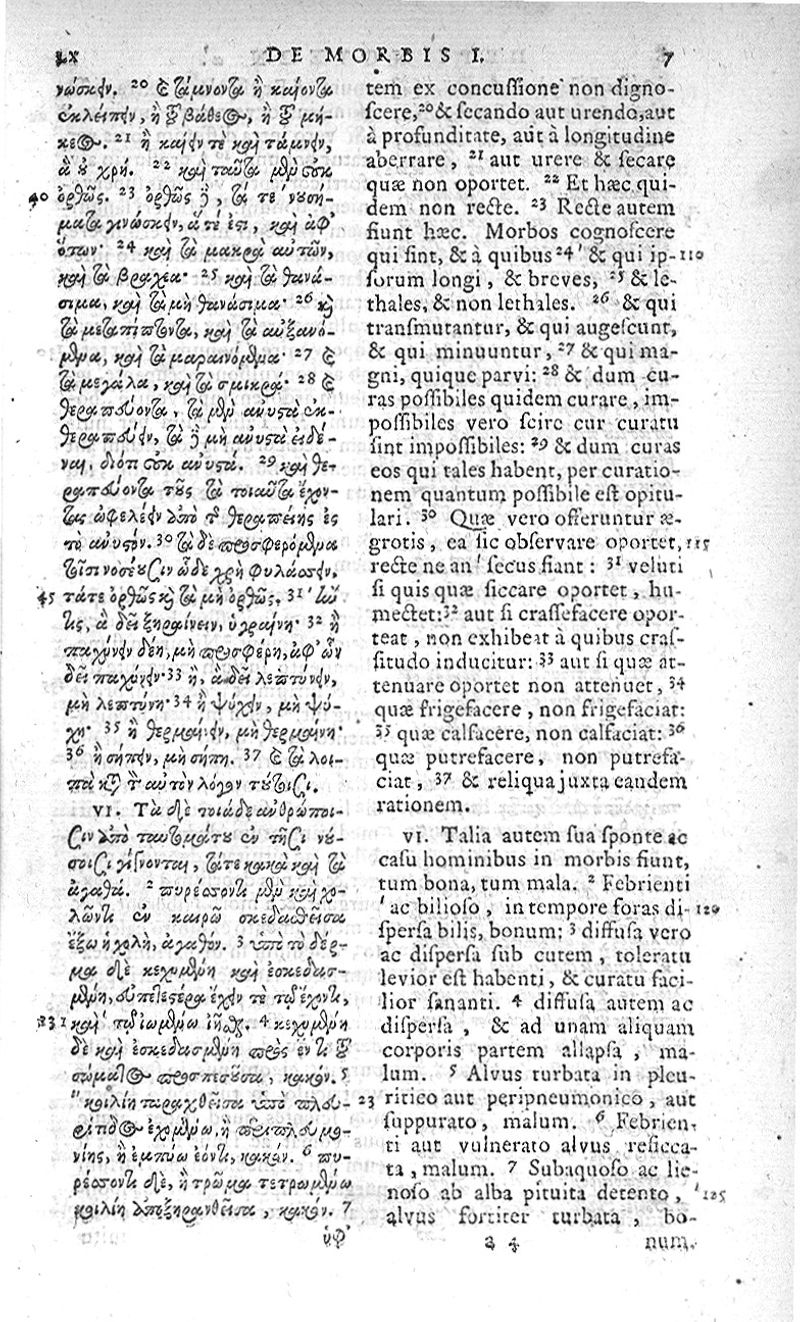 DE MORBIS I. 7
νώσκειν. 20 καὶ τάμνοντα ἢ καίοντα
ἐκλείπειν, ἢ τοῦ βάθεος, ἢ τοῦ μή-
κεος. 21 ἢ καίειν τὲ καὶ τάμνειν,
ἃ οὐ χρή. 22 καὶ ταῦτα μὲν οὐκ
40 ὀρθῶς. 23 ὀρθῶς δὲ, τά τε νουσή-
ματα γινώσκειν, ἅ τέ ἐστι, καὶ ἀφ'
ὅτων· 24 καὶ τὰ μακρὰ αὐτῶν,
καὶ τὰ βραχέα· 25 καὶ τὰ θανά-
σιμα, καὶ τὰ μὴ θανάσιμα· 26 καὶ
τὰ μεταπίπτοντα, καὶ τὰ αὐξανό-
μενα, καὶ τὰ μαραινόμενα· 27 καὶ
τὰ μεγάλα, καὶ τὰ σμικρά· 28 καὶ
θεραπεύοντα, τὰ μὲν ἀνυστὰ ἐκ-
θεραπεύειν, τὰ δὲ μὴ ἀνυστὰ εἰδέ-
ναι, διότι οὐκ ἀνυστά. 29 καὶ θε-
ραπεύοντα τοὺς τὰ τοιαῦτα ἔχον-
τας ὠφελέειν ἀπὸ τῆς θεραπείης ἐς
τὸ ἀνυστόν. 30 τὰ δὲ προσφερόμενα
τοῖσι νοσέουσιν ὧδε χρὴ φυλάσσειν,
45 τά τε ὀρθῶς καὶ τὰ μὴ ὀρθῶς. 31 ἤν
τις, ἃ δεῖ ξηραίνειν, ὑγραίνη· 32 ἢ
παχύνειν δέη, μὴ προσφέρη, ἀφ' ὧν
δεῖ παχύνειν· 33 ἢ, ἃ δεῖ λεπτύνειν,
μὴ λεπτύνη· 34 ἢ ψύχειν, μὴ ψύ-
χη· 35 ἢ θερμαίνειν, μὴ θερμαίνη·
36 ἢ σήπειν, μὴ σήπη. 37 καὶ τὰ λοι-
πὰ κατὰ τὸν αὐτὸν λόγον τούτοισι.
VI. Τὰ δὲ τοιάδε ἀνθρώποι-
σιν ἀπὸ ταυτομάτου ἐν τῇσι νού-
σοισι γίγνονται, τά τε κακὰ καὶ τὰ
ἀγαθά. 2 πυρέσσοντι μὲν καὶ χο-
λῶντι ἐν καιρῶ σκεδασθεῖσα
ἔξω ἡ χολὴ, ἀγαθόν. 3 ὑπὸ τὸ δέρ-
μα δὲ κεχυμένη καὶ ἐσκεδασ-
μένη, εὐπετεστέρα ἔχειν τὲ τῷ ἔχοντι,
331 καὶ τῷ ἰωμένω ἰῆσθαι. 4 κεχυμένη
δὲ καὶ ἐσκεδασμένη πρὸς ἕν τι τοῦ
σώματος προσπεσοῦσα, κακόν. 5
κοιλίη ταραχθεῖσα ὑπὸ πλευ-
ρίτιδος ἐχομένω, ἢ περιπλευμο-
νίης, ἢ ἐμπύω ἐόντι, κακόν. 6 πυ-
ρέσσοντι δὲ, ἢ τρῶμα τετρωμένω
κοιλίη ἀποξηρανθεῖσα, κακόν. 7
ὑφ'
tem ex concussione non digno-
scere, 20 & secando aut urendo, aut
à profunditate, aut à longitudine
aberrare, 21 aut urere & secare
quæ non oportet. 22 Et hæc qui-
dem non recte. 23 Recte autem
fiunt hæc. Morbos cognoscere
qui sint, & à quibus 24 & qui ip- 110
sorum longi, & breves, 25 & le-
thales, & non lethales. 26 & qui
transmutantur, & qui augescunt,
& qui minuuntur, 27 & qui ma-
gni, quique parvi: 28 & dum cu-
ras possibiles quidem curare, im-
possibiles vero scire cur curatu
sint impossibiles: 29 & dum curas
eos qui tales habent, per curatio-
nem quantum possibile est opitu-
lari. 30 Quæ vero offeruntur æ-
grotis, ea sic observare oportet, 115
recte ne an secus fiant: 31 veluti
si quis quæ siccare oportet, hu-
mectet: 32 aut si crassefacere opor-
teat, non exhibeat à quibus cras-
situdo inducitur: 33 aut si quæ at-
tenuare oportet non attenuet, 34
quæ frigefacere, non frigefaciat:
35 quæ calfacere, non calfaciat: 36
quæ putrefacere, non putrefa-
ciat, 37 & reliqua juxta eandem
rationem.
VI. Talia autem sua sponte ac
casu hominibus in morbis fiunt,
tum bona, tum mala. 2 Febrienti
ac bilioso, in tempore foras di- 120
spersa bilis, bonum: 3 diffusa vero
ac dispersa sub cutem, toleratu
levior est habenti, & curatu faci-
lior sananti. 4 diffusa autem ac
dispersa, & ad unam aliquam
corporis partem allapsa, ma-
lum. 5 Alvus turbata in pleu-
23 ritico aut peripneumonico, aut
suppurato, malum. 6 Febrien-
ti aut vulnerato alvus resicca-
ta, malum. 7 Subaquoso ac lie-
noso ab alba pituita detento, 125
alvus fortiter turbata, bo-
a 4 num.